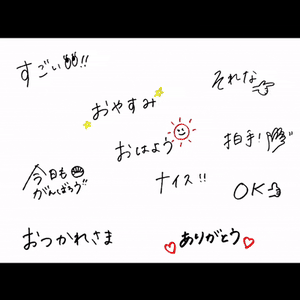 すごい!!
それな
おやすみ
おはよう
拍手!
今日も
がんばろう!!
ナイス!!
OK
おつかれさま
ありがとう